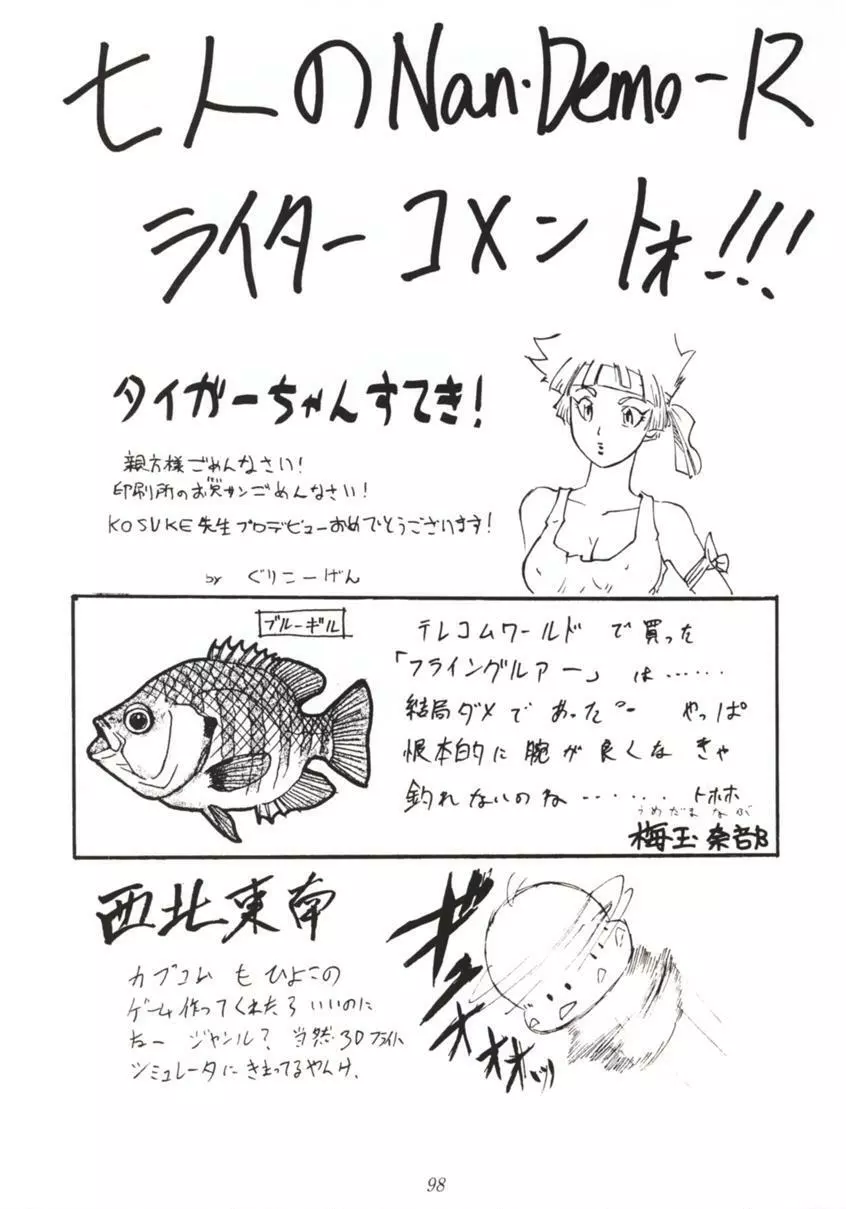 七人のNan・Demo-R
ライター コメントォ!!!
タイガーちゃんすてき!
親方様ごめんなさい!
印刷所のお賀サンごめんなさい!
KOSUKE先生プロデビューおめでとうございます!
by ぐりこーげん
ブルーギル
テレコムワールド で買った
「フライングルアー」 は……
結局ダメであった。 やっぱ
根本的に腕が良くなきゃ
釣れないのね…… トホホ
うめだま なぶ
梅玉奈部
西北東南
カプコム も ひよこの
ゲーム作ってくれたら いいのに
なー ジャンル? 当然・3Dフライト
シミュレータに きまってるやんけ.
ギュオオオオッ
98